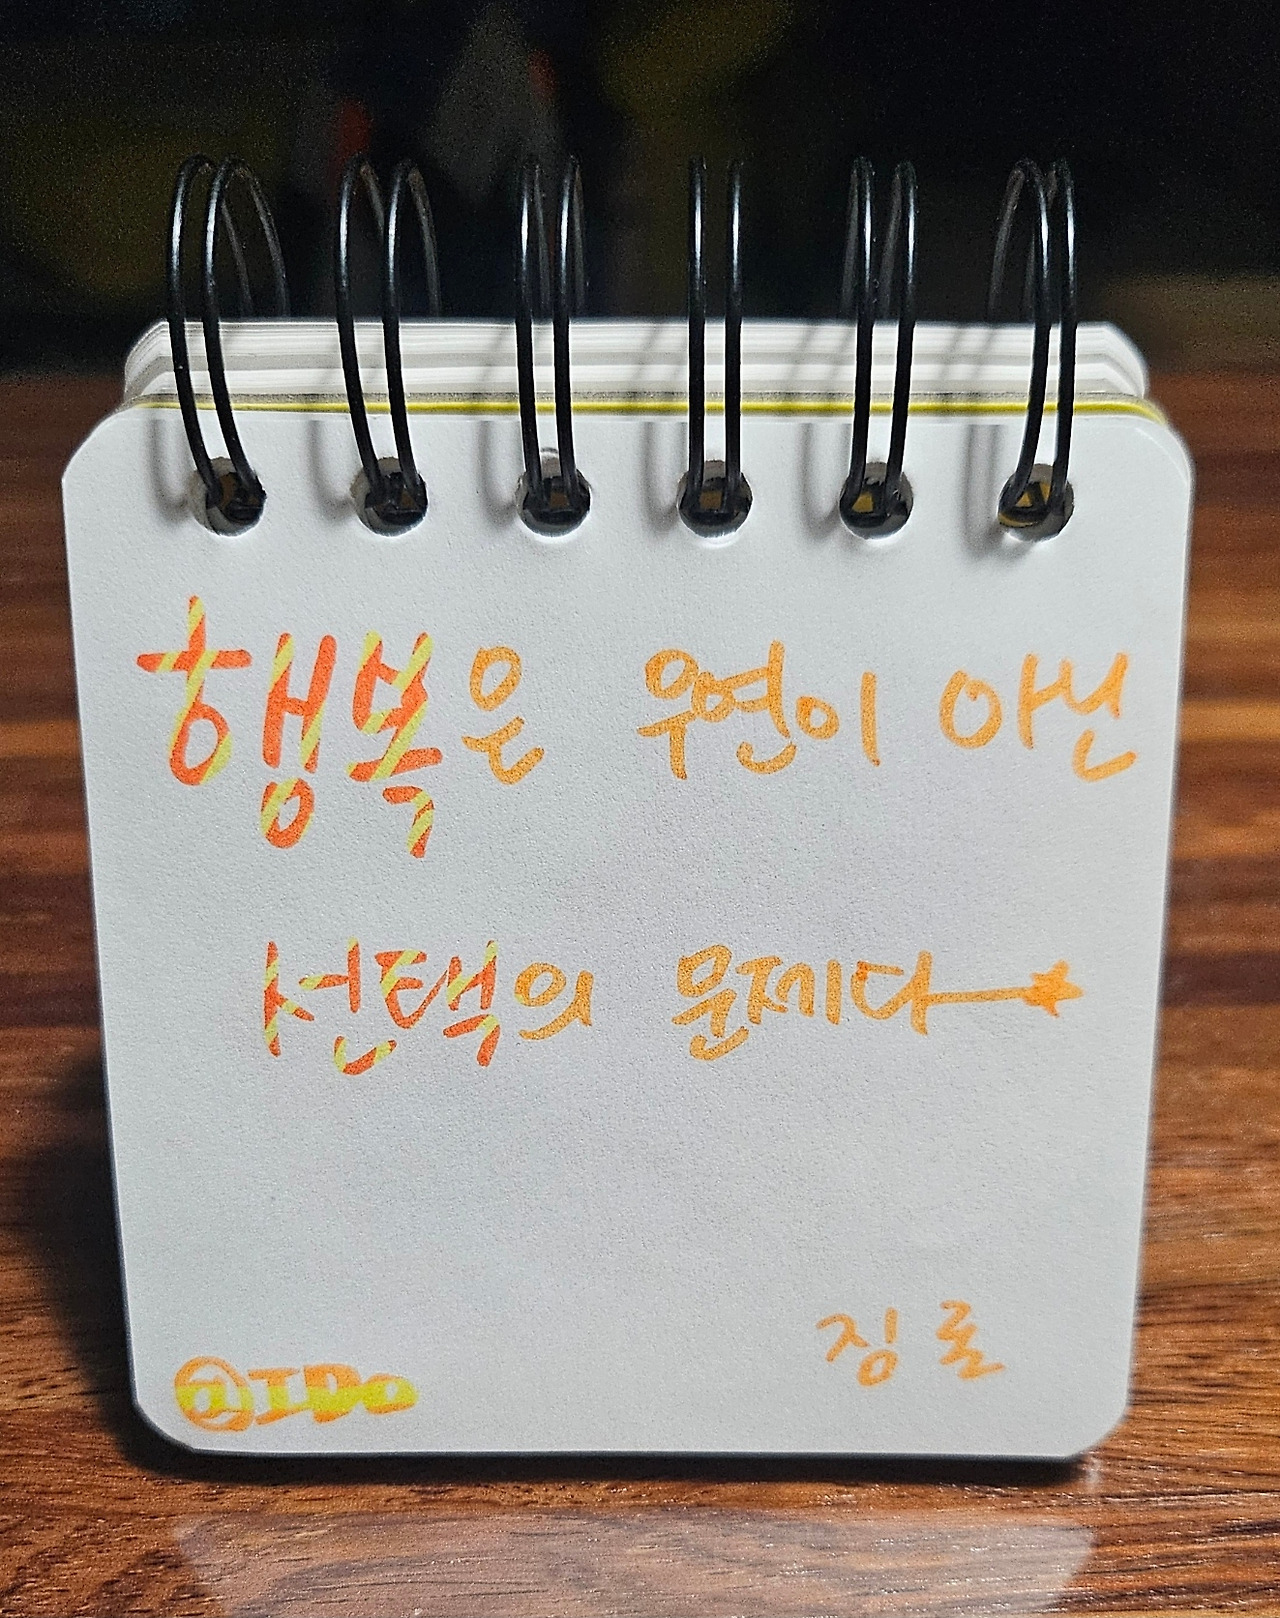 행복은 우연이 아닌
선택의 문제다
짐 론
IDo